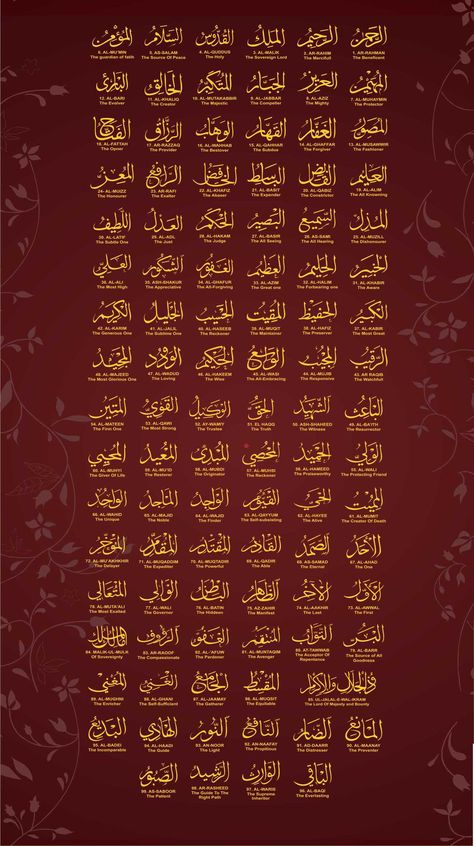 الرحمن
1. AR-RAHMAN
The Beneficent
الرحيم
2. AR-RAHIM
The Mercifull
الملك
3. AL-MALIK
The Sovereign Lord
القدوس
4. AL-QUDDUS
The Holy
السلام
5. AS-SALAM
The Source Of Peace
المؤمن
6. AL-MU'MIN
The guardian of faith
المهيمن
7. AL-MUHAYMIN
The Protector
العزيز
8. AL-AZIZ
The Mighty
الجبار
9. AL-JABBAR
The Compeller
المتكبر
10. AL-MUTAKABBIR
The Majestic
الخالق
11. AL-KHALIQ
The Creator
البارئ
12. AL-BARI
The Evolver
المصور
13. AL-MUSAWWIR
The Fashioner
الغفار
14. AL-GHAFFAR
The Forgiver
القهار
15. AL-QAHHAR
The Subdue
الوهاب
16. AL-WAHHAB
The Bestover
الرزاق
17. AR-RAZZAQ
The Provider
الفتاح
18. AL-FATTAH
The Opner
العليم
19. AL-ALIM
The All Knowing
القابض
20. AL-QABIZ
The Constrictor
الباسط
21. AL-BASIT
The Expender
الخافض
22. AL-KHAFIZ
The Abaser
الرافع
23. AR-RAFI
The Exalter
المعز
24. AL-MUIZZ
The Honourer
المذل
25. AL-MUZILL
The Dishonourer
السميع
26. AS-SAMI
The All Hearing
البصير
27. AL-BASIR
The All Seeing
الحكم
28. AL-HAKAM
The Judge
العدل
29. AL-ADL
The Just
اللطيف
30. AL-LATIF
The Subtle One
الخبير
31. AL-KHABIR
The Aware
الحليم
32. AL-HALIM
The Forbearing one
العظيم
33. AL-AZIM
The Great one
الغفور
34. AL-GHAFUR
The All-Forgiving
الشكور
35. ASH-SHAKUR
The Appreciative
العلي
36. AL-ALI
The Most High
الكبير
37. AL-KABIR
The Most Great
الحفيظ
38. AL-HAFIZ
The Preserver
المقيت
39. AL-MUQIT
The Maintainer
الحسيب
40. AL-HASEEB
The Reckoner
الجليل
41. AL-JALIL
The Sublime One
الكريم
42. AL-KARIM
The Generous One
الرقيب
43. AR RAQIB
The Watchfull
المجيب
44. AL-MUJIB
The Responsive
الواسع
45. AL-WASI
The All-Embracing
الحكيم
46. AL-HAKEEM
The Wise
الودود
47. AL-WADUD
The Loving
المجيد
48. AL-MAJEED
The Most Glorious One
الباعث
49. AL-BAYTH
The Resurrecter
الشهيد
50. ASH-SHAHEED
The Witness
الحق
51. EL HAQQ
The Truth
الوكيل
52. AY-WAMIY
The Trustee
القوي
53. AL-QAWI
The Most Strong
المتين
54. AL-MATEEN
The Firm One
الولي
55. AL-WALI
The Protecting Friend
الحميد
56. AL-HAMEED
The Praiseworthy
المحصي
57. AL-MUHSI
The Reckoner
المبدئ
58. AL-MUBDI
The Originator
المعيد
59. AL-MU'ID
The Restorer
المحيي
60. AL-MUHYI
The Giver Of Life
المميت
61. AL-MUMIT
The Creator Of Death
الحي
62. AL-HAYEE
The Alive
القيوم
63. AL-QAYYUM
The Self-subsisting
الواجد
64. AL-WAJD
The Finder
الماجد
65. AL-MAJID
The Noble
الواحد
66. AL-WAHID
The Unique
الأحد
67. AL-AHAD
The One
الصمد
68. AS-SAMAD
The Eternal
القادر
69. AL-QADIR
The Able
المقتدر
70. AL-MUQTADIR
The Powerful
المقدم
71. AL-MUQADDIM
The Expediter
المؤخر
72. AL-MU'AKHKHIR
The Delayer
الأول
73. AL-AWWAL
The First
الآخر
74. AL-AAKHIR
The Last
الظاهر
75. AZ-ZAHIR
The Manifest
الباطن
76. AL-BATIN
The Hiddens
الوالي
77. AL-WALI
The Governor
المتعالي
78. AL-MUTA'ALI
The Most Exalted
البر
79. AL-BARR
The Source of All Goodness
التواب
80. AT-TAWWAB
The Acceptor Of Repentance
المنتقم
81. AL-MUNTAQIM
The Avenger
العفو
82. AL-'AFUW
The Pardonner
الرؤوف
83. AR-RAOOF
The Compassionate
مالك الملك
84. MALIK-UL-MULK
Of Sovereignty
ذو الجلال والإكرام
85. UL-JALAL-E-WAL-IKRAM
The Lord Of Majesty and Bounty
المقسط
86. AL-MUQSIT
The Equitable
الجامع
87. AL-JAAMAY
The Gatherer
الغني
88. AL-GHANI
The Self-Sufficient
المغني
89. AL-MUGHNI
The Enricher
المانع
90. AL-MAANAY
The Preventer
الضار
91. AD-DAARR
The Distresser
النافع
92. AN-NAAFAY
The Propitious
النور
93. AN-NOOR
The Light
الهادي
94. AL-HAADI
The Guide
البديع
95. AL-BADEI
The Incomparable
الباقي
96. AL-BAQI
The Everlasting
الوارث
97. AL-WARIS
The Supreme Inheritor
الرشيد
98. AR-RASHEED
The Guide To The Right Path
الصبور
99. AS-SABOOR
The Patient